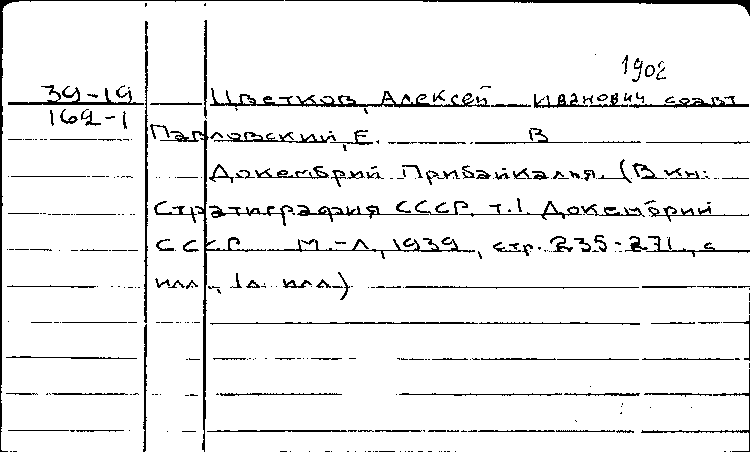 1902
39-19 Цветков, Алексей Иванович соавт
162-1
Павловский, Е. В
Докембрий Прибайкалья. (В кн:
Стратиграфия СССР. т.1. Докембрий
СССР М.-Л, 1939, стр. 235-271, с
илл., 1л. илл.)